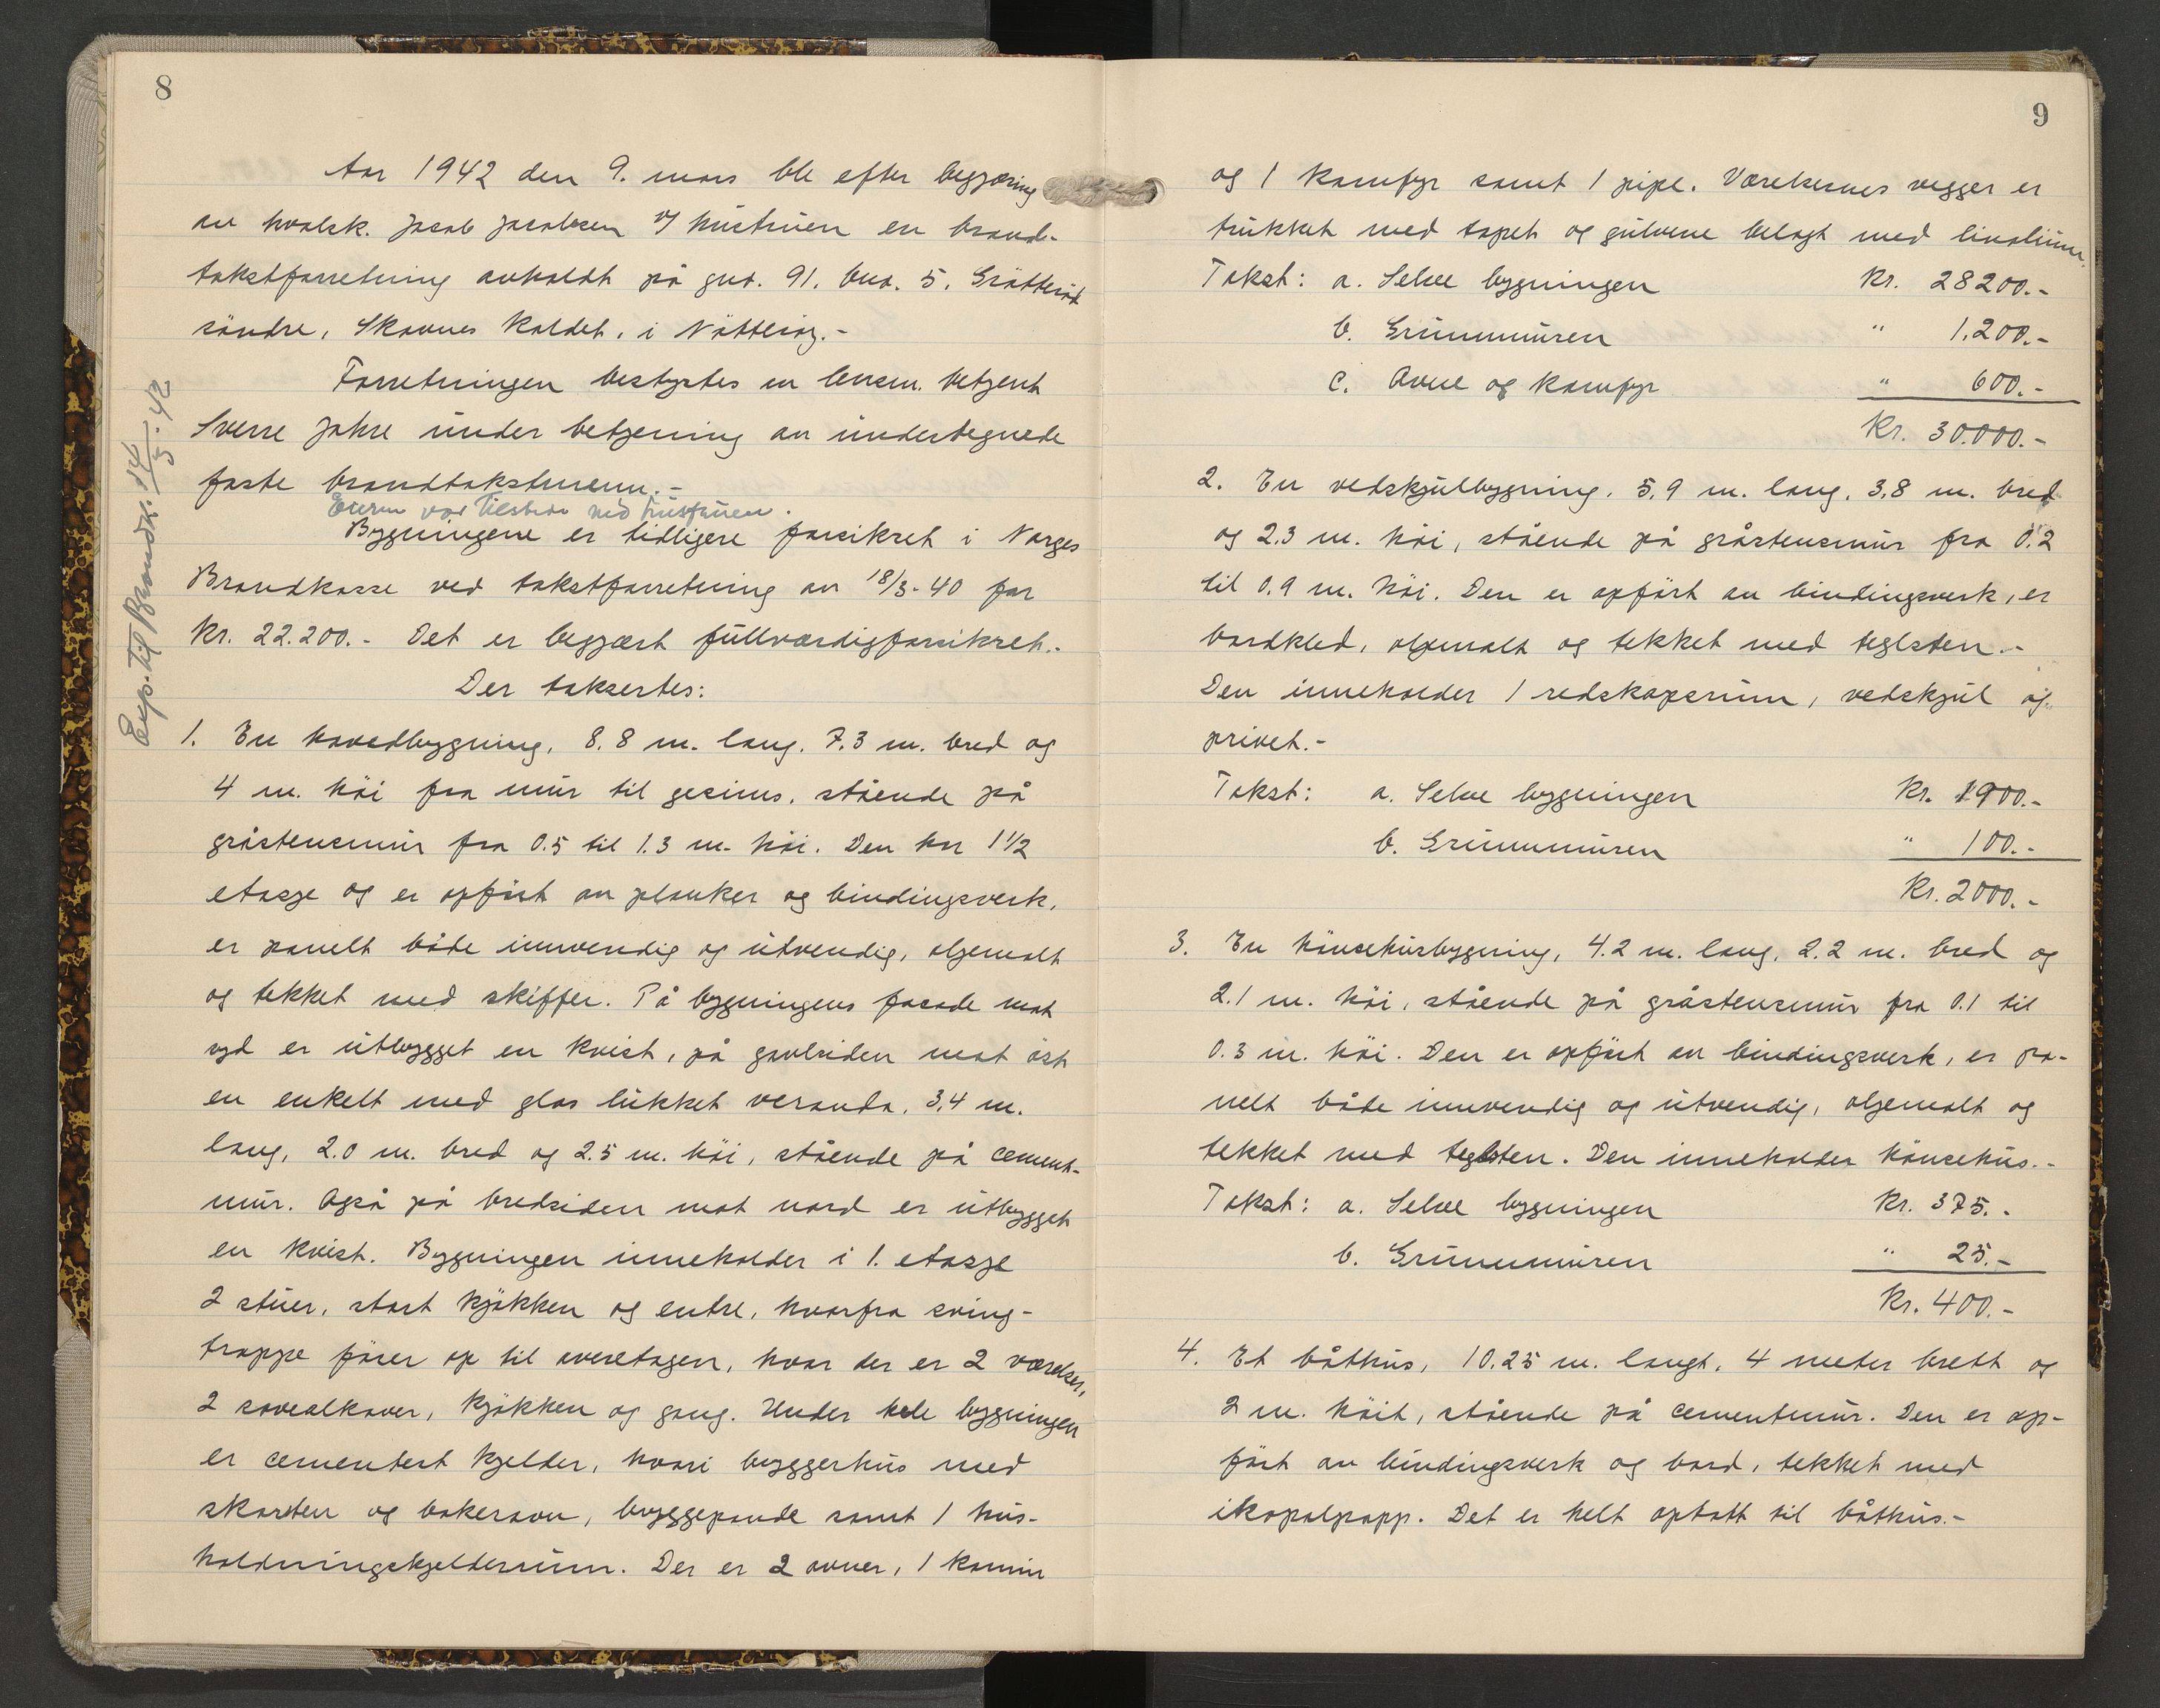 8
Aar 1942 den 9. mars ble efter begjæring
av hvalsk. Jacob Jacobsen v/ hustruen en brand-
takstforretning avholdt på gno. 91. bno. 5. Gråtterød
søndre, Skavnes kaldet, i Nøtterøy.-
Forretningen bestyrtes av lensm. betjent
Sverre Jahre under betjening av undertegnede
faste brandtakstmenn.-
Eieren var tilstede ved hustruen.
Bygningene er tidligere forsikret i Norges
Brandkasse ved takstforretning av 18/3-40 for
kr. 22.200.- Det er begjært fullverdigforsikret.-
Der taksertes:
1. En hovedbygning, 8.8 m. lang. 7.3 m. bred og
4 m. høi fra mur til gesims, stående på
gråstensmur fra 0.5 til 1.3 m. høi. Den har 1 1/2
etasje og er opført av planker og bindingsverk,
er panelt både innvendig og utvendig, oljemalt
og tekket med skiffer. På bygningens facade mot
syd er utbygget en kvist, på gavlsiden mot øst
en enkelt med glas lukket veranda, 3,4 m.
lang, 2.0 m. bred og 2.5 m. høi, stående på cement-
mur. Også på bredsiden mot nord er utbygget
en kvist. Bygningen inneholder i 1. etasje
2 stuer, stort kjøkken og entre, hvorfra sving-
trappe fører op til overetagen, hvor der er 2 værelser,
2 sovealkover, kjøkken og gang. Under hele bygningen
er cementert kjelder, hvori bryggerhus med
skorsten og bakerovn, bryggepande samt 1 hus-
holdningskjelderrum. Der er 2 ovner, 1 kamin
Exp. til Brandk. 14/3-42
9
og 1 komfyr samt 1 pipe. Værelsernes vegger er
trukket med tapet og gulvene belagt med linolium.
Takst: a. Selve bygningen Kr. 28200.-
b. Grunnmuren " 1.200.-
c. Ovne og komfyr " 600.-
Kr. 30.000.-
2. En vedskjulbygning, 5,9 m. lang, 3,8 m. bred
og 2.3 m. høi, stående på gråstensmur fra 0.2
til 0.9 m. høi. Den er opført av bindingsverk, er
bordkled, oljemalt og tekket med teglsten.-
Den inneholder 1 redskapsrum, vedskjul og
privet.-
Takst: a. Selve bygningen Kr. 1900.-
b. Grunnmuren " 100.-
Kr. 2000.-
3. En hønsehusbygning, 4.2 m. lang, 2.2 m. bred og
2.1 m. høi, stående på gråstensmur fra 0.1 til
0.3 m. høi. Den er opført av bindingsverk, er pa-
nelt både innvendig og utvendig, oljemalt og
tekket med teglsten. Den inneholder hønsehus.-
Takst: a. Selve bygningen Kr. 375.-
b. Grunnmuren " 25.-
Kr. 400.-
4. Et båthus, 10.25 m. langt, 4 meter bredt og
2 m. høit, stående på cementmur. Den er op-
ført av bindingsverk og bord, tekket med
ikopalpapp. Det er helt optatt til båthus.-